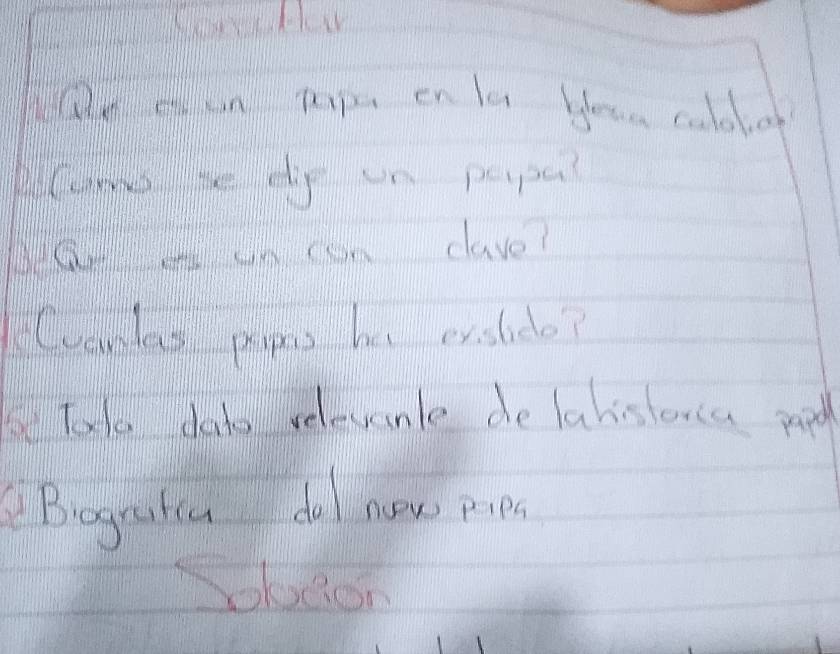 Consultar
1 Que es un papa en la Iglesia catolica?
2 Como se elije un papa?
3 Que es un con clave?
4 Cuantas papas ha existido?
5 Todo dato relevante de la historia papal
6 Biografia del nuevo papa
Solucion